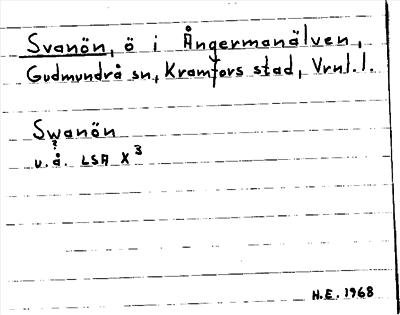 Svanön, ö i Ångermanälven,
Gudmundrå sn, Kramfors stad, Vrnl.l.
Swanön
?
u.å. LSA X3
H.E. 1968